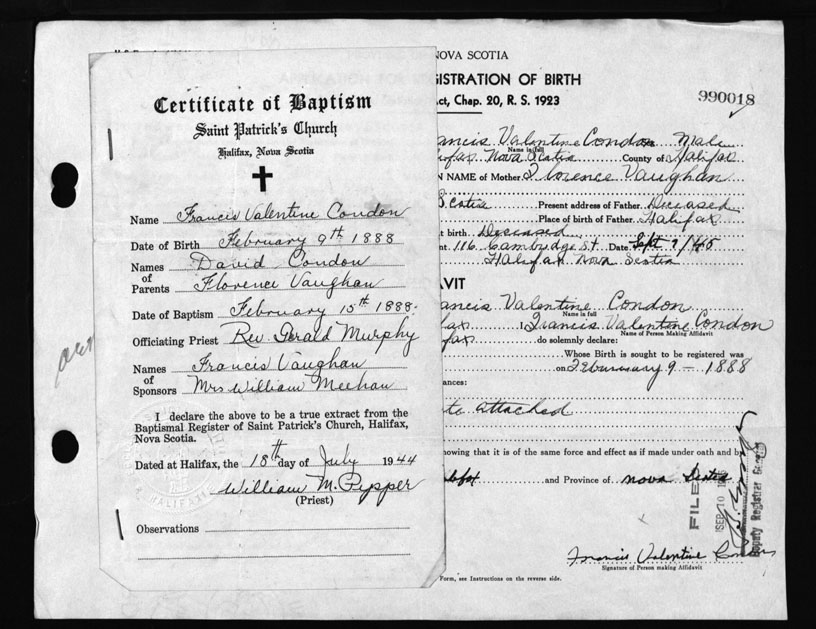 Certificate of Baptism
Saint Patrick's Church
Halifax, Nova Scotia
Name Francis Valentine Condon
Date of Birth February 9th 1888
Names of Parents David Condon
Florence Vaughan
Date of Baptism February 15th 1888.
Officiating Priest Rev. Gerald Murphy
Names of Sponsors Francis Vaughan
Mrs William Meehan
I declare the above to be a true extract from the
Baptismal Register of Saint Patrick's Church, Halifax,
Nova Scotia.
Dated at Halifax, the 18th day of July 1944
William M. Pepper
(Priest)
Observations
NOVA SCOTIA
GISTRATION OF BIRTH
Act, Chap. 20, R. S. 1923
990018
ancis Valentine Condon Male
Name in full
ifax Nova Scotia County of Halifax
N NAME of Mother Florence Vaughan
Scotia Present address of Father Deceased
Place of birth of Father Halifax
t birth Deceased
nt 116 Cambridge St. Date Sept 7/45
Halifax Nova Scotia
AVIT
ancis Valentine Condon
Name in full
fax I Francis Valentine Condon
Name of Person Making Affidavit
fax do solemnly declare:
Whose Birth is sought to be registered was
on February 9 - 1888
tances:
ate attached
nowing that it is of the same force and effect as if made under oath and by
lifax and Province of Nova Scotia
FILED
SEP 10
Deputy Registrar General
Francis Valentine Condon
Signature of Person making Affidavit
Form, see Instructions on the reverse side.